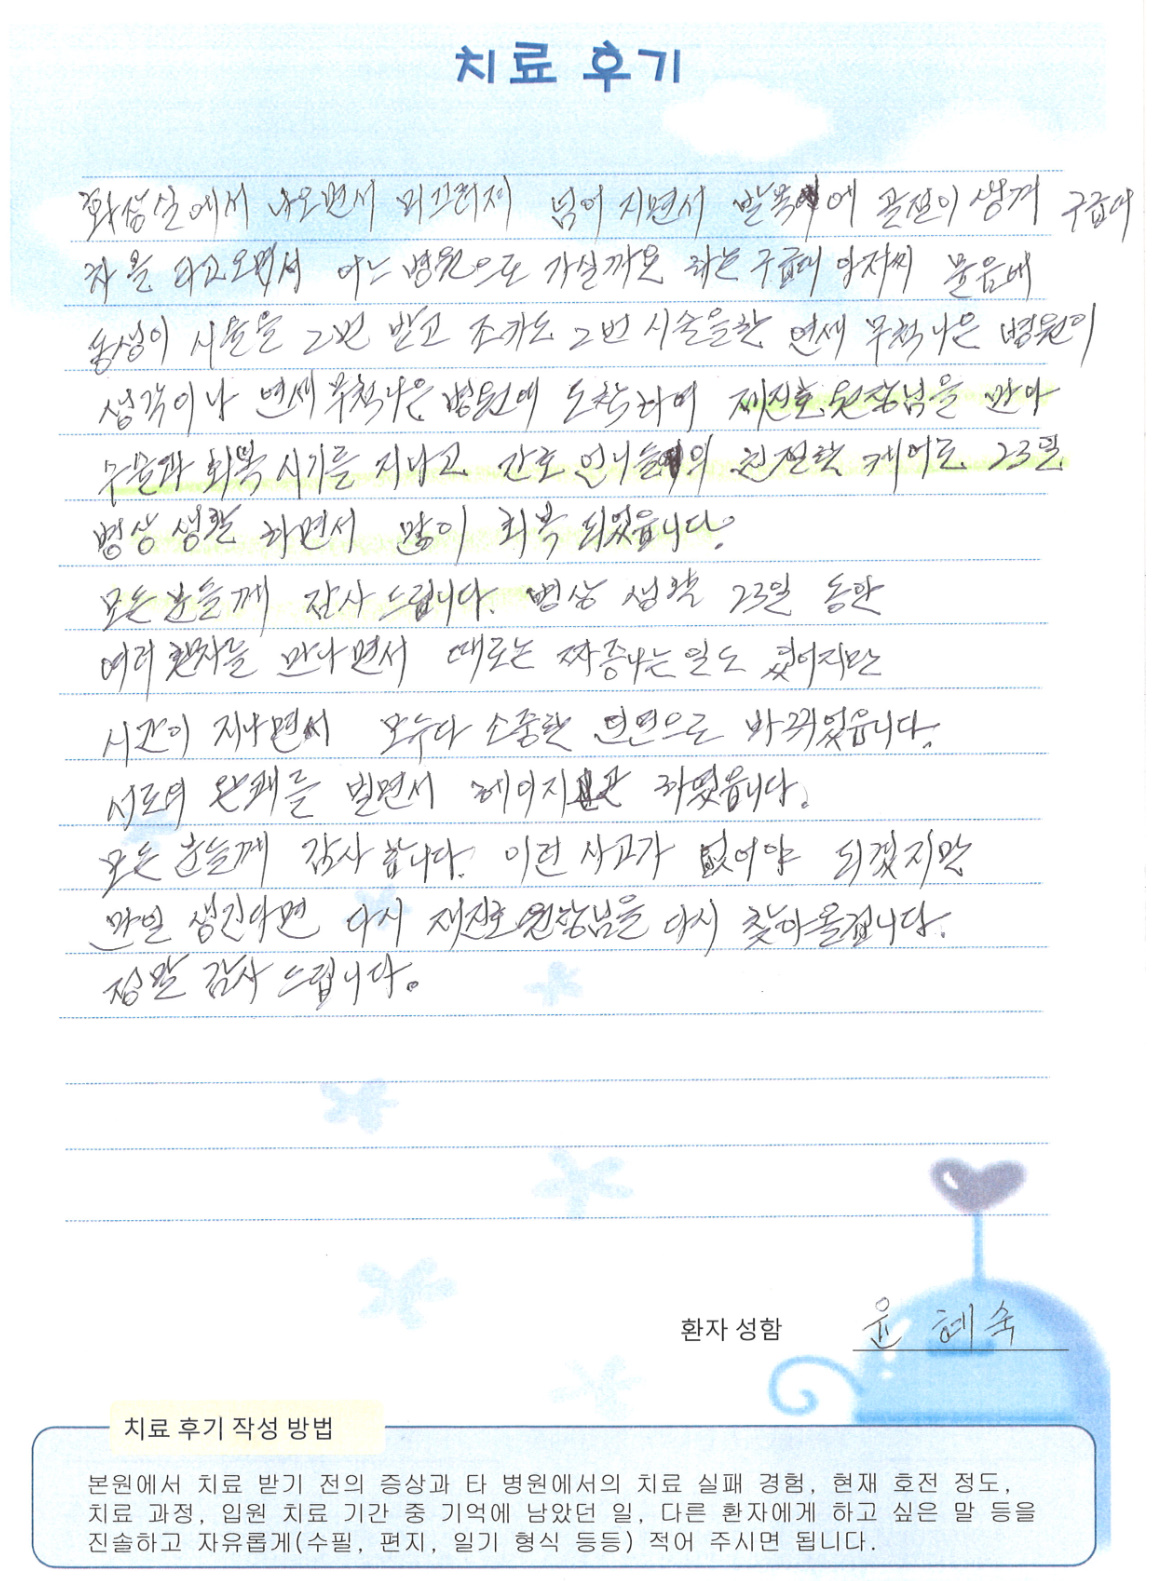 치료 후기
화장실에서 나오면서 미끄러져 넘어 지면서 발목에 골절이 생겨 구급대
차를 타고오면서 어느 병원으로 가실까요 하는 구급대 아저씨 물음에
동생이 시술을 2번 받고 조카도 2번 시술을한 연세 무척나은 병원이
생각이나 연세무척나은 병원에 도착하여 제진호 원장님을 만나
수술과 회복 시기를 지나고 간호 언니들의 친절한 케어로 23일
병상 생활 하면서 많이 회복 되었읍니다.
모든 분들께 감사 드립니다. 병상 생활 23일 동안
여러 환자들 만나면서 때로는 짜증나는일도 있어지만
시간이 지나면서 모두다 소중한 인연으로 바뀌었읍니다.
서로의 완쾌를 빌면서 헤어지곤 하였읍니다.
모든 분들께 감사 합니다. 이런 사고가 없어야 되겠지만
만일 생긴다면 다시 제진호 원장님을 다시 찾아올겁니다.
정말 감사 드립니다.
환자 성함 윤 혜숙
치료 후기 작성 방법
본원에서 치료 받기 전의 증상과 타 병원에서의 치료 실패 경험, 현재 호전 정도,
치료 과정, 입원 치료 기간 중 기억에 남았던 일, 다른 환자에게 하고 싶은 말 등을
진솔하고 자유롭게(수필, 편지, 일기 형식 등등) 적어 주시면 됩니다.